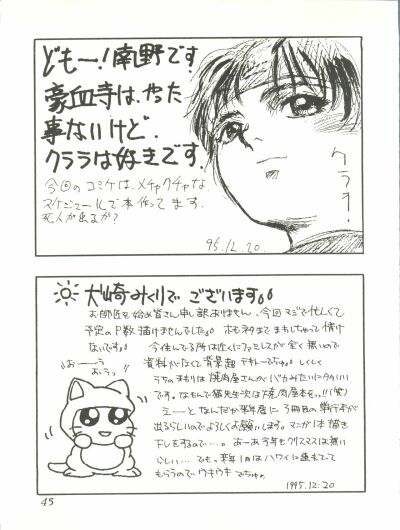 どもー!南野です
豪血寺は、やった
事ないけど、
クララは好きです.
今回のコミケは、メチャクチャな
スケジュールで本作ってます.
死人が出るか?
クララ!
95.12.20.
大崎みくりで ございます。。
お師匠を始め皆さん申し訳ありません、今回マジで忙しくて
予定のP数描けませんでした。。
ないです。。 今住んでる所は近くにファミレスが全く無いので
資料がなくて背景
うちのまわりは焼肉屋さんがバカみたいに
です。なもんで猫先生次は焼肉屋本をっ!!(笑)
えーとなんだか来年度に3冊目の単行本が
出るらしいのでよろしくお願いします。マンガ1本描き
下しをするので…。おーあ今年もクリスマスは無い
らしい…でも、来年1月はハワイに連れてって
もらうのでウキウキでちゅ。
おーーう
おーうっ
1995.12.20
45